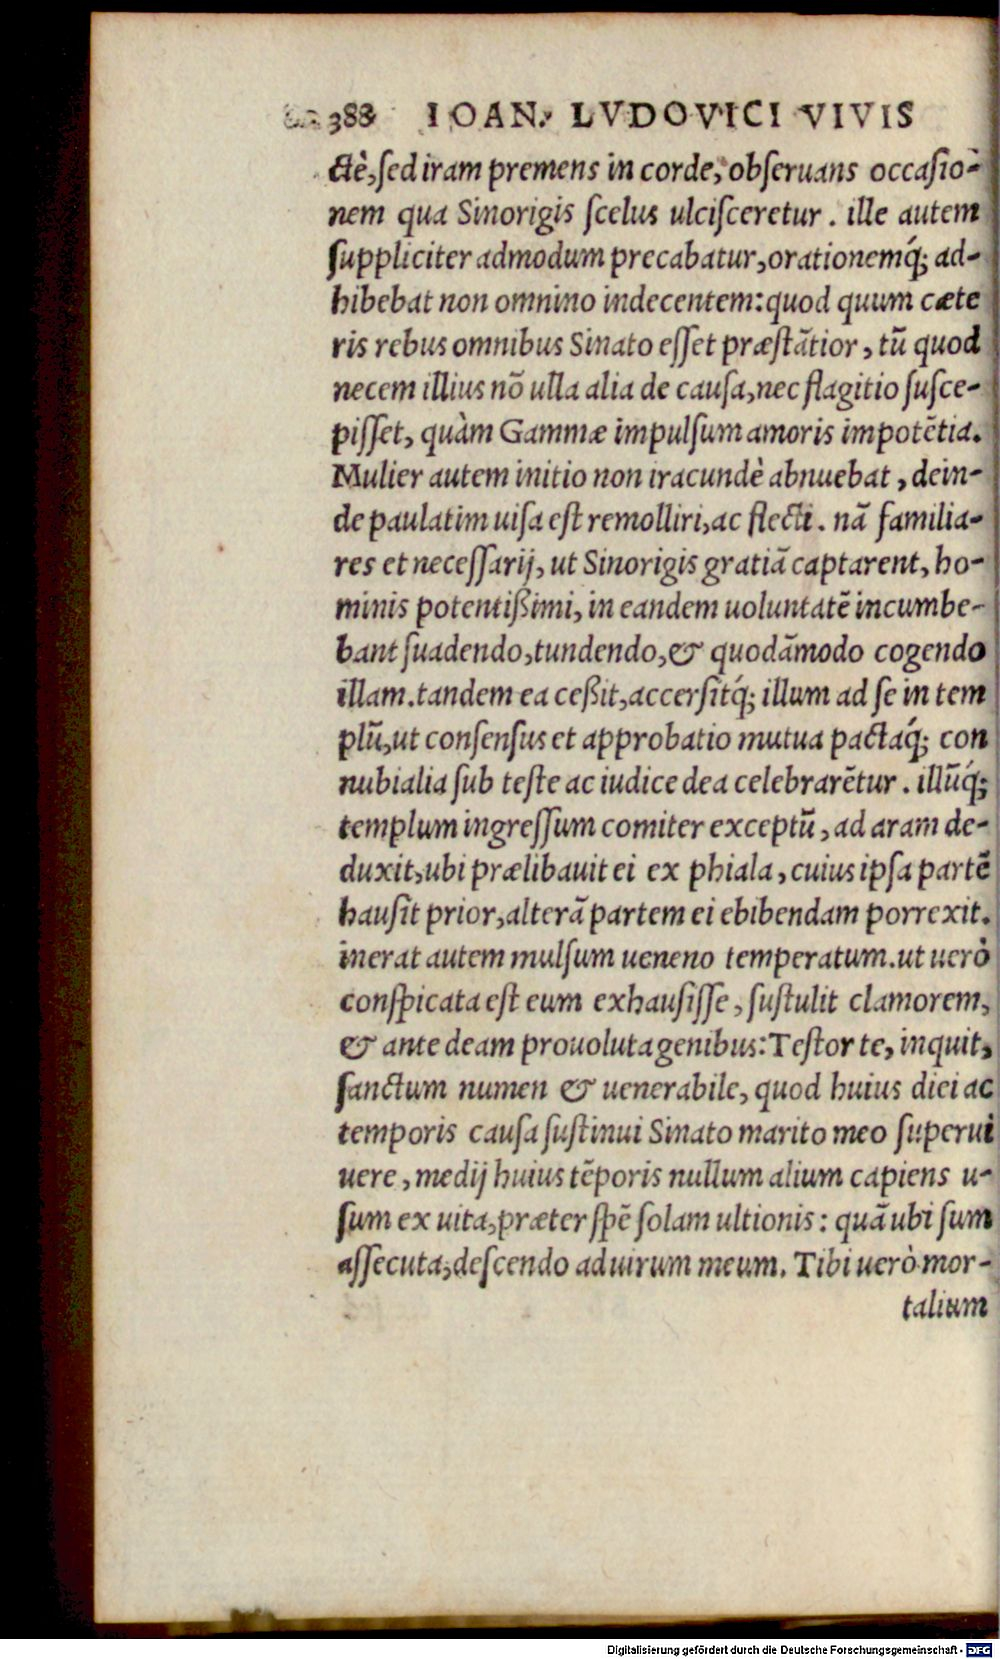 388 IOAN. LVDOVICI VIVIS
ctè, sed iram premens in corde, obseruans occasio-
nem qua Sinorigis scelus ulcisceretur. ille autem
suppliciter admodum precabatur, orationemq́; ad-
hibebat non omnino indecentem: quod quum cæte
ris rebus omnibus Sinato esset præstãtior, tũ quod
necem illius nõ ulla alia de causa, nec flagitio susce-
pisset, quàm Gammæ impulsum amoris impotẽtia.
Mulier autem initio non iracundè abnuebat, dein-
de paulatim uisa est remolliri, ac flecti. nã familia-
res et necessarij, ut Sinorigis gratiã captarent, ho-
minis potentißimi, in eandem uoluntatẽ incumbe-
bant suadendo, tundendo, & quodãmodo cogendo
illam. tandem ea ceßit, accersitq́; illum ad se in tem
plũ, ut consensus et approbatio mutua pactaq́; con
nubialia sub teste ac iudice dea celebrarẽtur. illũq́;
templum ingressum comiter exceptũ, ad aram de-
duxit, ubi prælibauit ei ex phiala, cuius ipsa partẽ
hausit prior, alterã partem ei ebibendam porrexit.
inerat autem mulsum ueneno temperatum. ut uerò
conspicata est eum exhausisse, sustulit clamorem,
& ante deam prouoluta genibus: Testor te, inquit,
sanctum numen & uenerabile, quod huius diei ac
temporis causa sustinui Sinato marito meo superui
uere, medij huius tẽporis nullum alium capiens u-
sum ex uita, præter spẽ solam ultionis: quã ubi sum
assecuta, descendo ad uirum meum. Tibi uerò mor-
talium
Digitalisierung gefördert durch die Deutsche Forschungsgemeinschaft - DFG